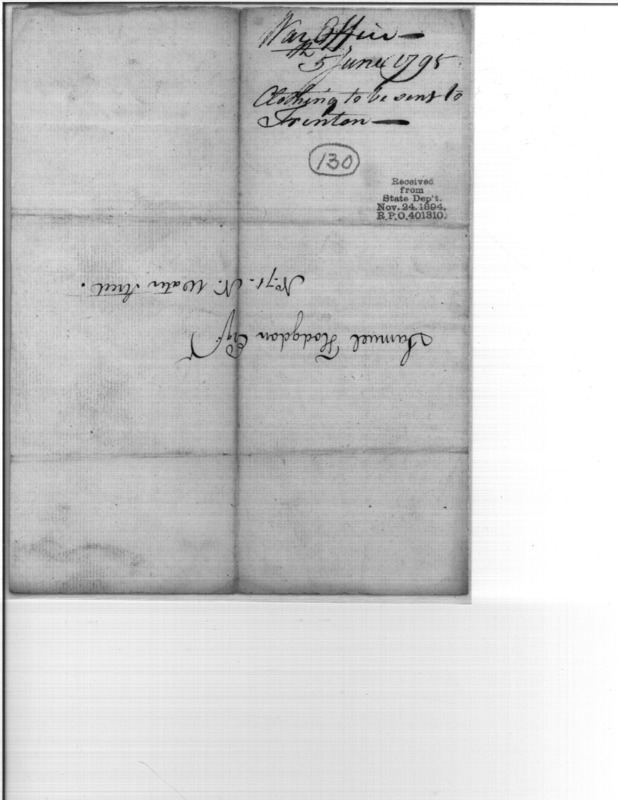 War Office —
5th June 1795
Clothing to be sent to
Trenton —
130
Received
from
State Dep't.
Nov. 24. 1894.
R.P.O. 401310.
Samuel Hodgdon Esqr.
No. 71. N. Water Street.